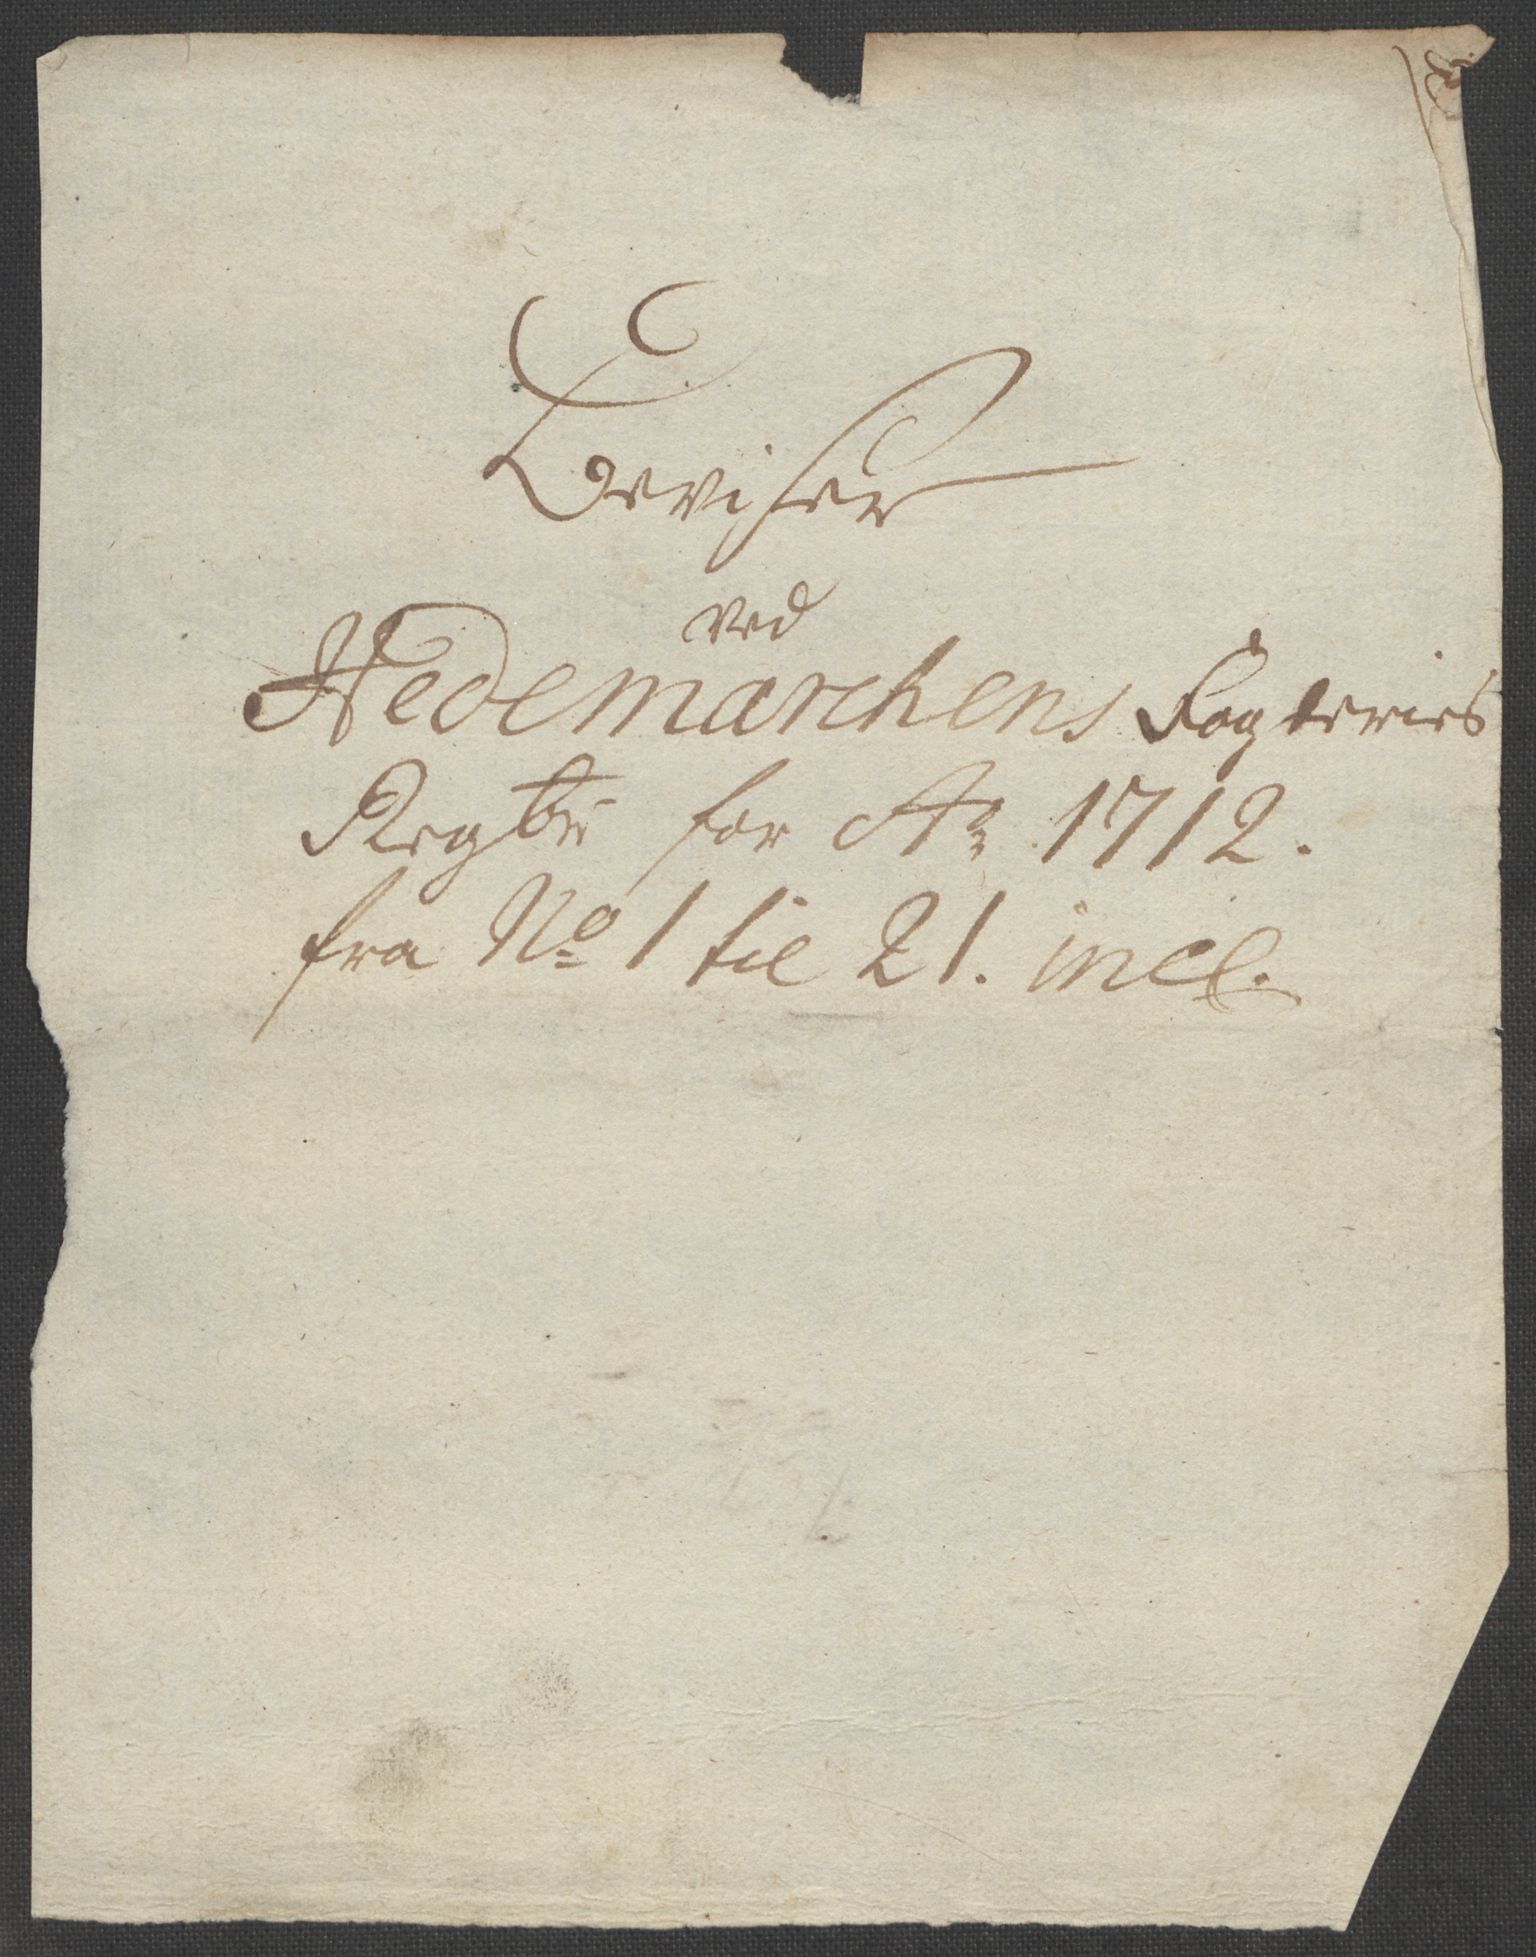 Beviser
ved
Hedemarchens Fogteries
Regbr for Ao 1712.
fra No 1 til 21. incl.